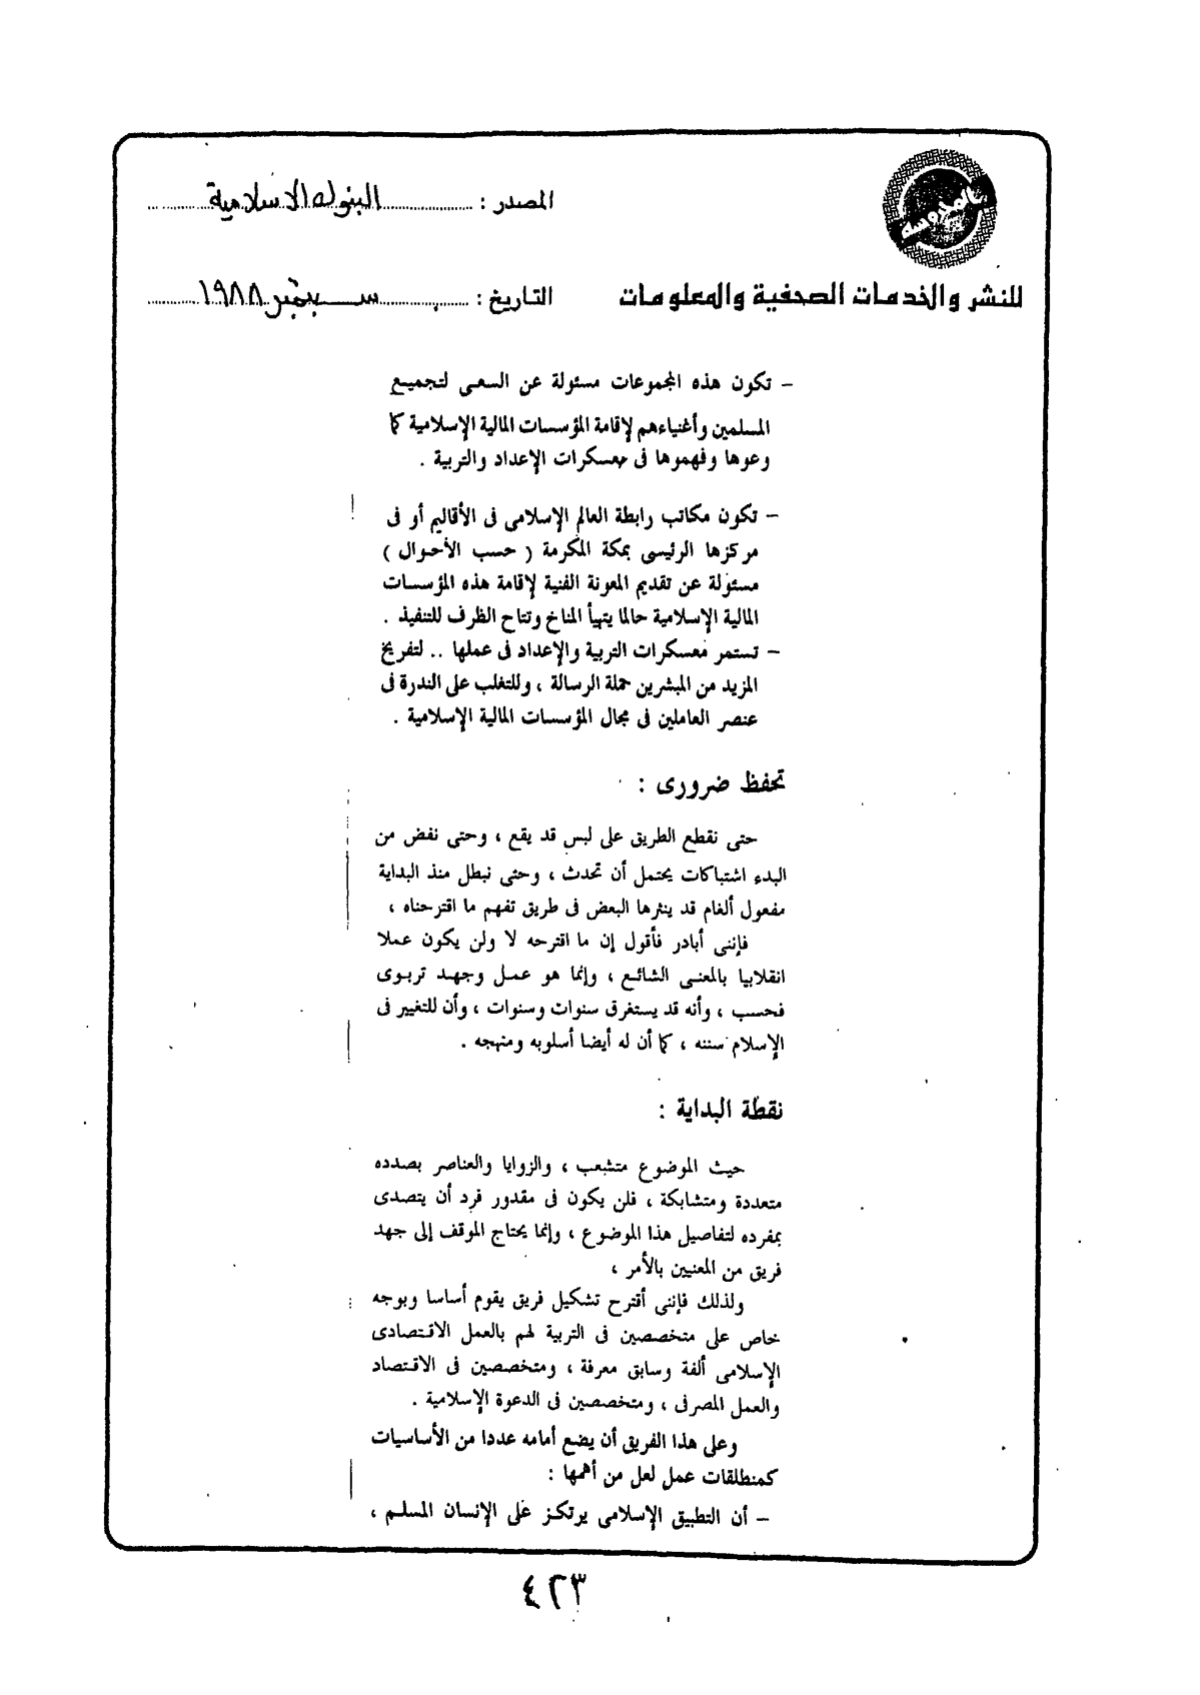 المصدر : البنوك الإسلامية
للنشر والخدمات الصحفية والمعلومات
التاريخ : سبتمبر ١٩٨٨
– تكون هذه المجموعات مسئولة عن السعى لتجميع
المسلمين وأغنياءهم لإقامة المؤسسات المالية الإسلامية كما
وعوها وفهموها فى معسكرات الإعداد والتربية .
– تكون مكاتب رابطة العالم الإسلامى فى الأقاليم أو فى
مركزها الرئيسى بمكة المكرمة ( حسب الأحوال )
مسئولة عن تقديم المعونة الفنية لإقامة هذه المؤسسات
المالية الإسلامية حالما يتهيأ المناخ وتتاح الظرف للتنفيذ .
– تستمر معسكرات التربية والإعداد فى عملها .. لتفريخ
المزيد من المبشرين حملة الرسالة ، وللتغلب على الندرة فى
عنصر العاملين فى مجال المؤسسات المالية الإسلامية .
تحفظ ضرورى :
حتى نقطع الطريق على لبس قد يقع ، وحتى نفض من
البدء اشتباكات يحتمل أن تحدث ، وحتى نبطل منذ البداية
مفعول ألغام قد ينثرها البعض فى طريق تفهم ما اقترحناه ،
فإننى أبادر فأقول إن ما اقترحه لا ولن يكون عملا
انقلابيا بالمعنى الشائع ، وإنما هو عمل وجهد تربوى
فحسب ، وأنه قد يستغرق سنوات وسنوات ، وأن للتغيير فى
الإسلام سننه ، كما أن له أيضا أسلوبه ومنهجه .
نقطة البداية :
حيث الموضوع متشعب ، والزوايا والعناصر بصدده
متعددة ومتشابكة ، فلن يكون فى مقدور فرد أن يتصدى
بمفرده لتفاصيل هذا الموضوع ، وإنما يحتاج الموقف إلى جهد
فريق من المعنيين بالأمر ،
ولذلك فإننى أقترح تشكيل فريق يقوم أساسا وبوجه
خاص على متخصصين فى التربية لهم بالعمل الاقتصادى
الإسلامى ألفة وسابق معرفة ، ومتخصصين فى الاقتصاد
والعمل المصرفى ، ومتخصصين فى الدعوة الإسلامية .
وعلى هذا الفريق أن يضع أمامه عددا من الأساسيات
كمنطلقات عمل لعل من أهمها :
– أن التطبيق الإسلامى يرتكز على الإنسان المسلم ،
٤٢٣